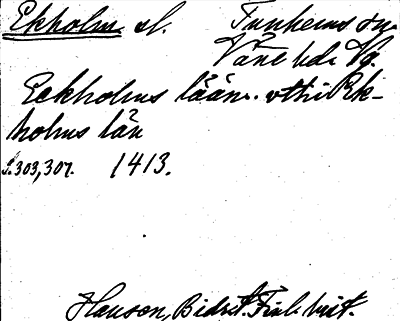 Ekholm sl. Tunhems sn.
Väne hd. Vg.
Eckholms lään. vthi Ek-
holms län
S. 303, 307. 1413.
Hausen, Bidr. t. Finl. hist.